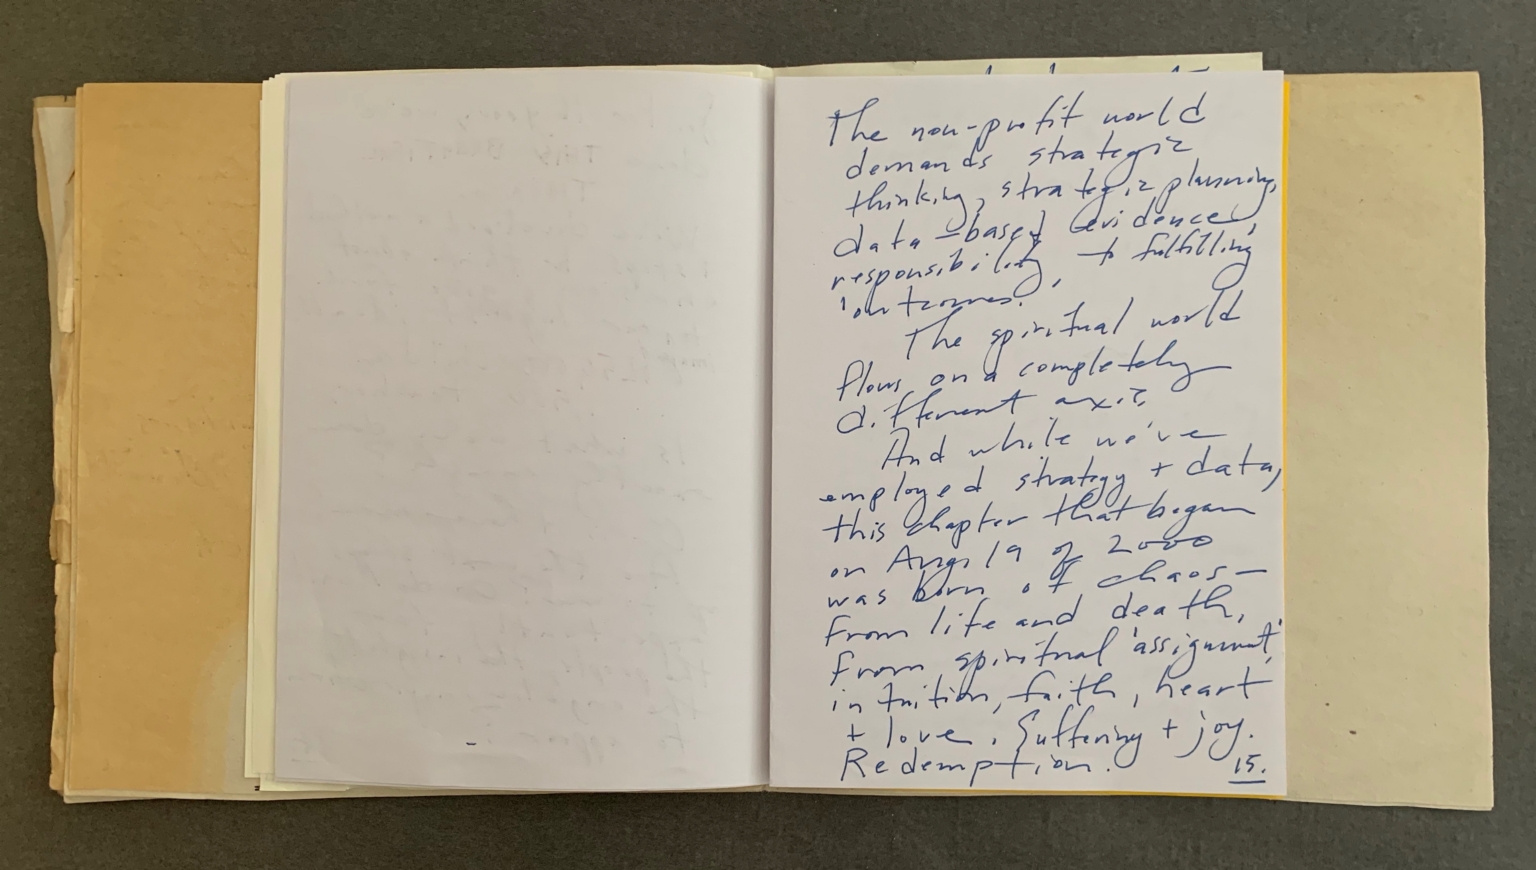 The non-profit world
demands strategic
thinking, strategic planning,
data-based evidence,
responsibility, + fulfilling
'outcomes.'
The spiritual world
flows on a completely
different axis.
And while we've
employed strategy + data,
this chapter that began
on Aug. 19 of 2000
was born of chaos—
from life and death,
from spiritual 'assignment',
intuition, faith, heart
+ love. Suffering + joy.
Redemption.
15.